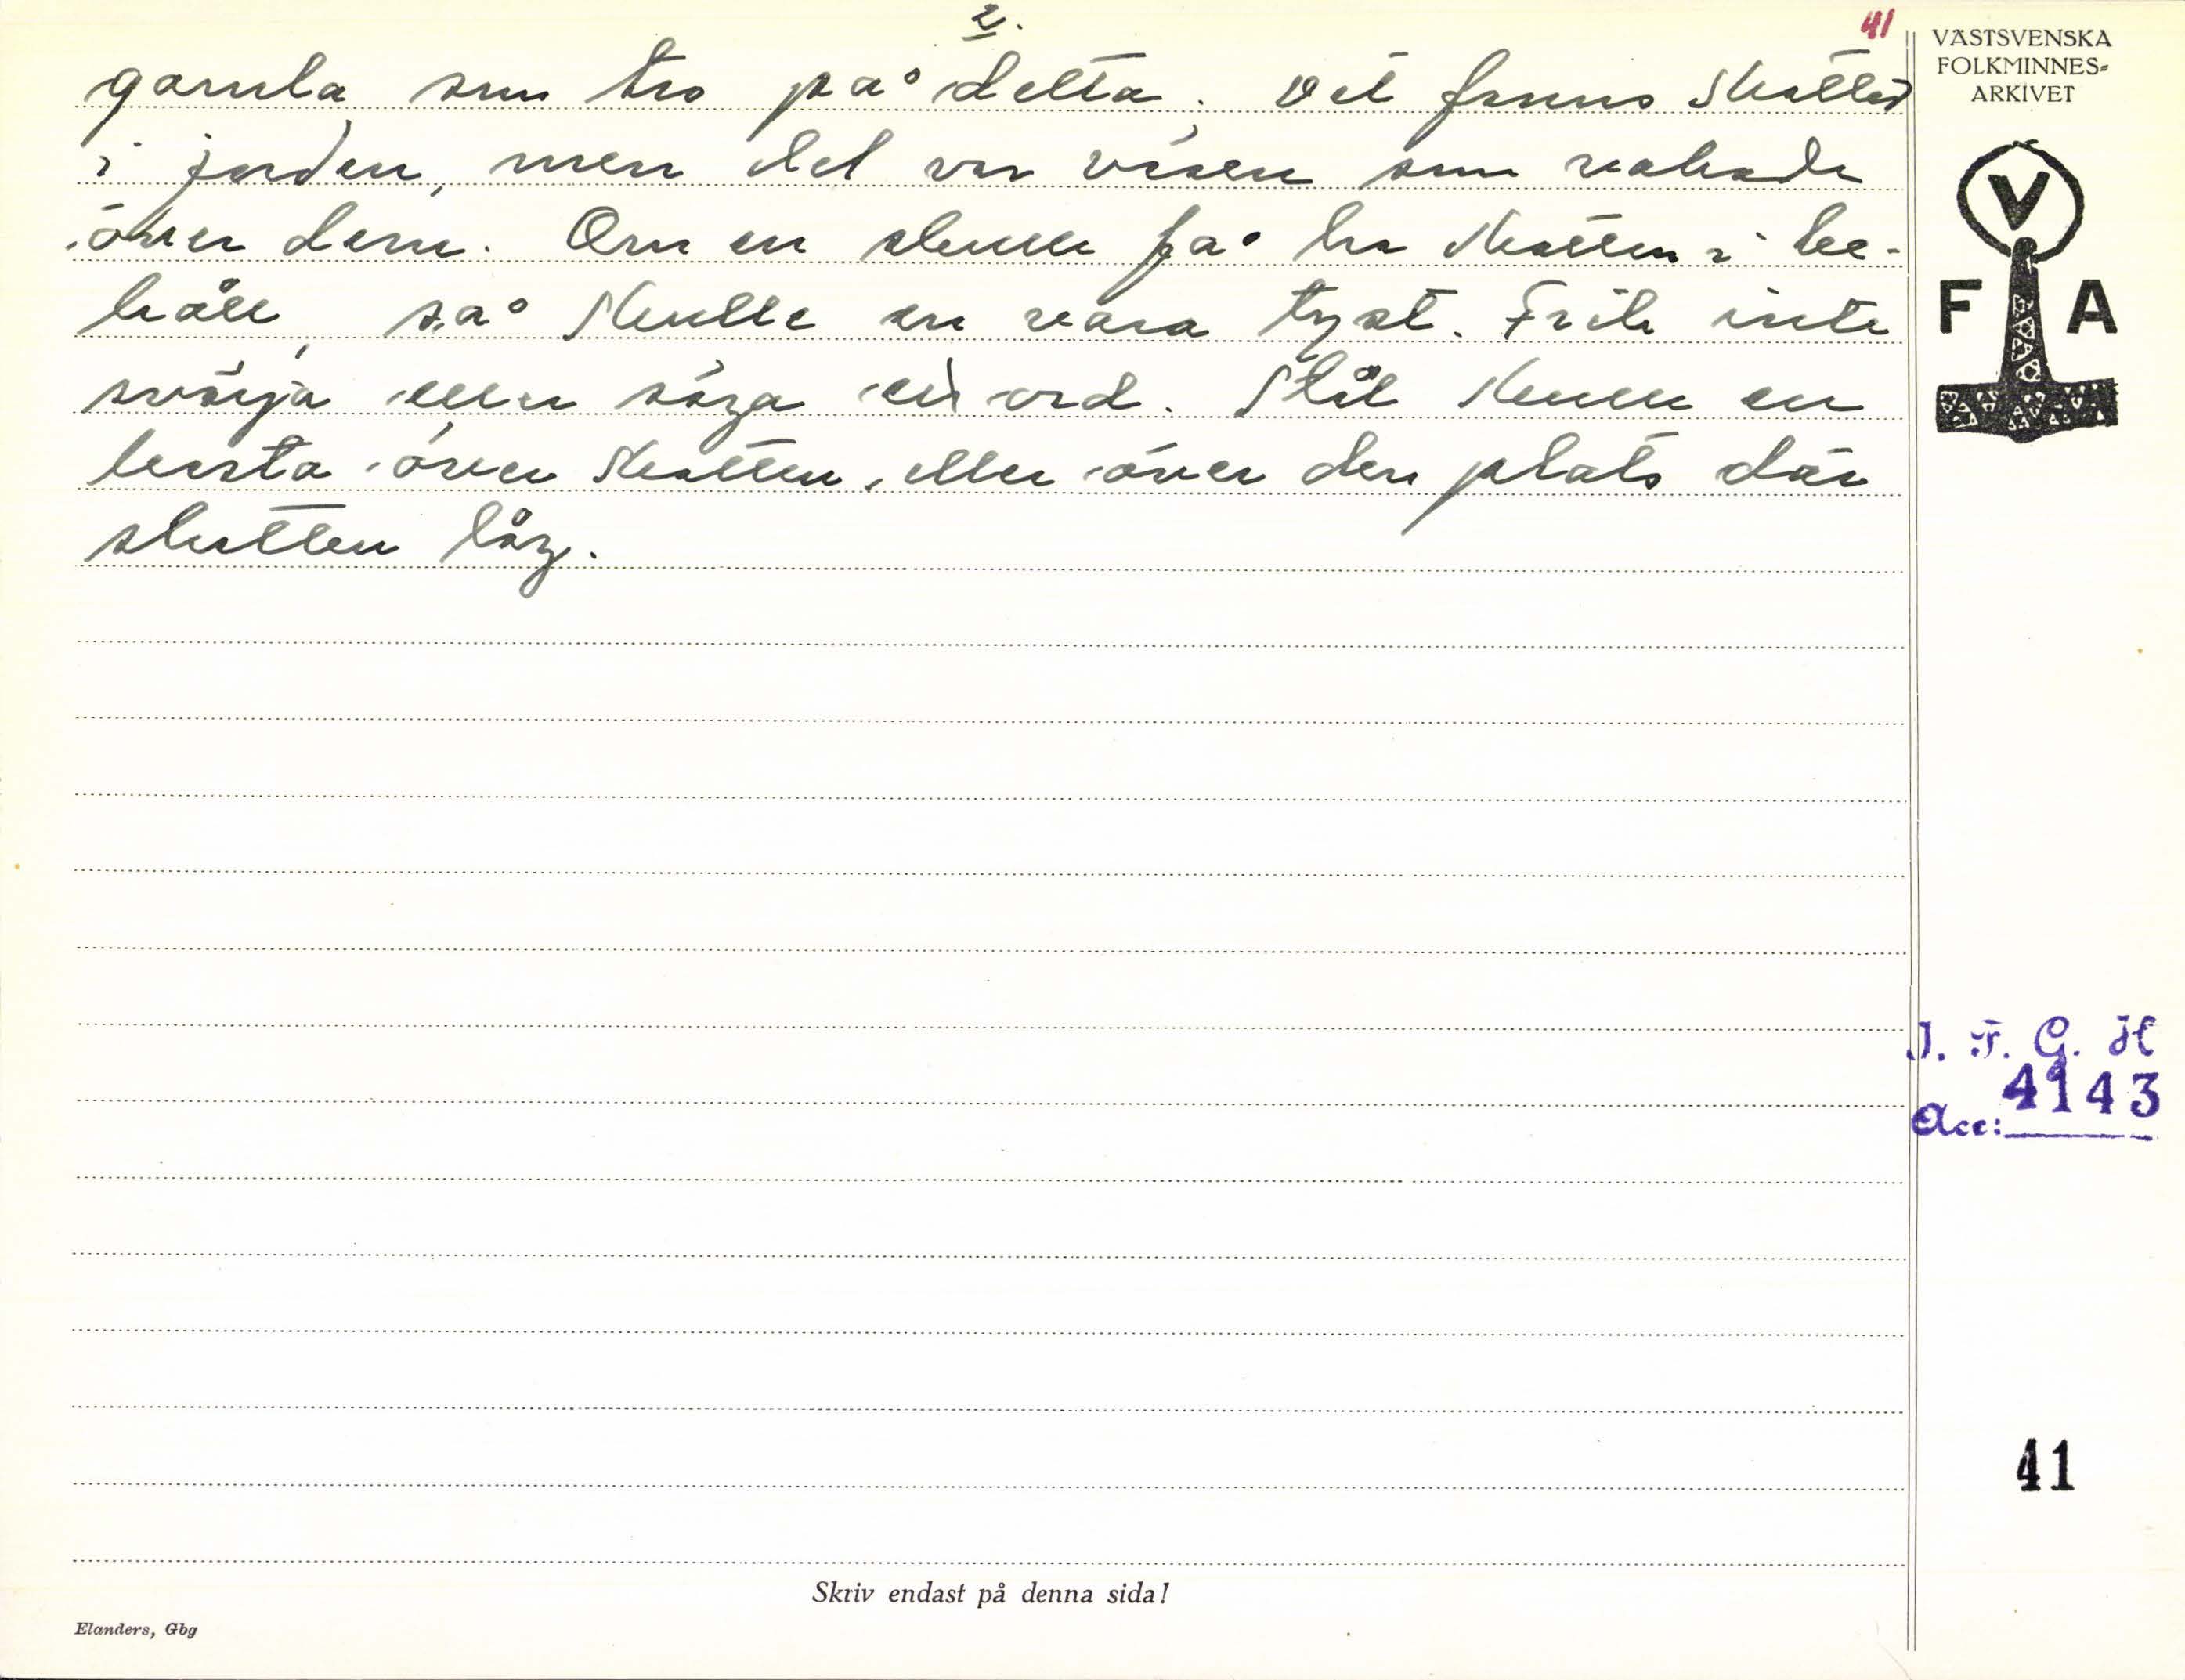 2.
41
gamla som tro på detta. Det fanns skatter
i jorden, men det var väsen som vakade
över dem. Om en skulle få ha skatten i be-
håll, så skulle en vara tyst. Fick inte
svärja eller säga ett ord. Stål skulle en
kasta över skatten, eller över den plats där
skatten låg.
VÄSTSVENSKA
FOLKMINNES-
ARKIVET
V
F A
I. F. G. H
4143
Acc:
41
Skriv endast på denna sida!
Elanders, Gbg